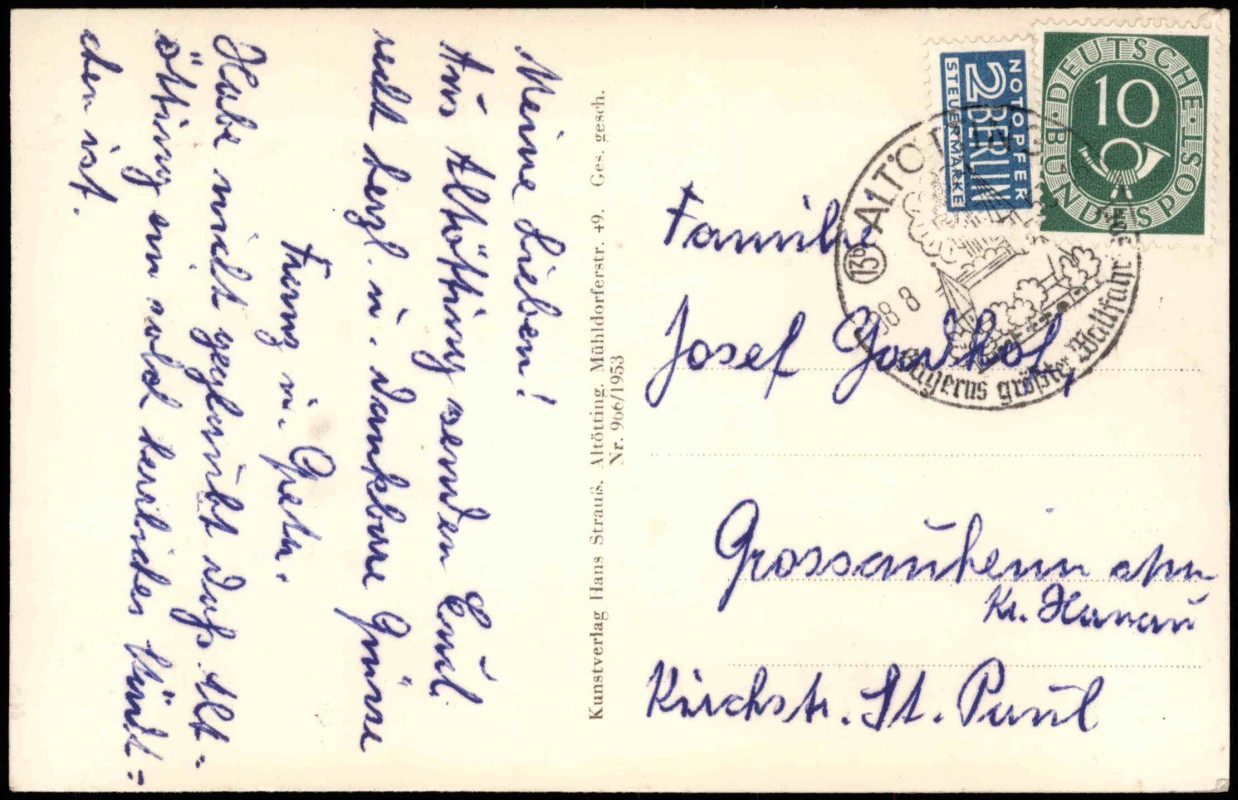 Meine Lieben!
Aus Altötting senden Euch
recht herzl. u. dankbare Grüsse
Franz u. Greta.
Habe nicht geglaubt daß Alt-
ötting ein solch herrliches Städt=
chen ist.
Kunstverlag Hans Strauß, Altötting, Mühldorferstr. 49. Ges. gesch.
Nr. 966/1953
NOTOPFER
2 BERLIN
STEUERMARKE
DEUTSCHE BUNDESPOST
10
(13b) ALTÖTTING
8 8
Bayerns größter Wallfahrts
Familie
Josef
Grossauheim a/m
Kr. Hanau
Kirchstr. St. Paul